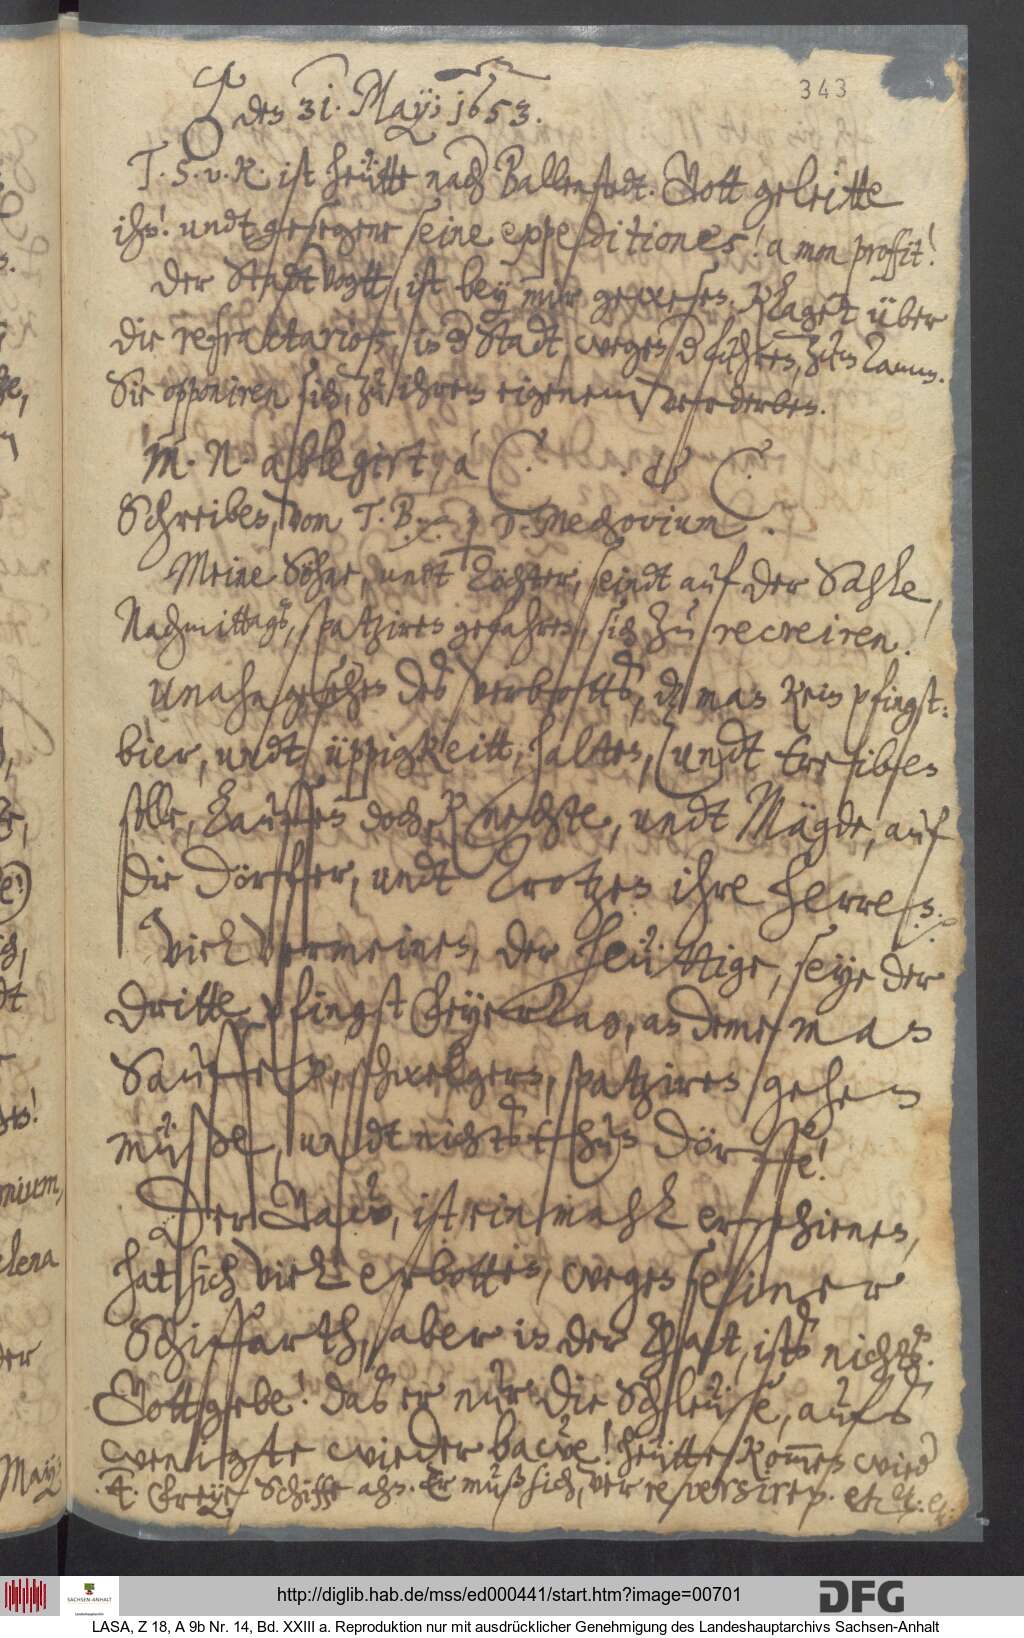 343
den 31. Maÿ: 1653.
T. S. v. R. ist heütte nach Ballenstedt. Gott geleitte
ihn! undt gesegene seine expeditiones! a mon proffit!
Der StadtVogtt, ist bey mir gewesen. Klaget über
die refractarios, in der Stadt, wegen der fuhren, zum Tamm.
Sie opponiren sich, zu ihrem eigenem verderben.
M. N. ablegirt, à C. et C.
Schreiben, von T. B. D. Mechovium
Meine Söhne, undt Töchter, seindt auf der Sahle,
Nachmittags, spatziren gefahren, sich zu recreiren.
Unangesehen des verbotts, daß man kein pfingst-
bier, undt üppigkeitt, halten, undt treiben
solle, lauffen doch, Knechte, undt Mägde, auf
die Dörffer, undt Trotzen ihre herren.
Viel vermeinen, der heüttige, seye der
dritte pfingst Feyertag, an deme man
Sauffen, schwelgern, spatziren gehen
müße, undt nichts thun dörffe!
Der Vacu, ist einmahl erschienen,
hat sich viel erbotten, wegen seiner
Schiffarth, aber in der That, ists nichts.
Gott gebe! daß er nur die Schleuse, aufs
wenigste wieder bawe! heütte kommen wieder
4. Freye Schiffe ahn. Er muß sich, reversiren. etc. etc. etc.
Maÿ
lena
der
http://diglib.hab.de/mss/ed000441/start.htm?image=00701
DFG
SACHSEN-ANHALT
LASA, Z 18, A 9b Nr. 14, Bd. XXIII a. Reproduktion nur mit ausdrücklicher Genehmigung des Landeshauptarchivs Sachsen-Anhalt